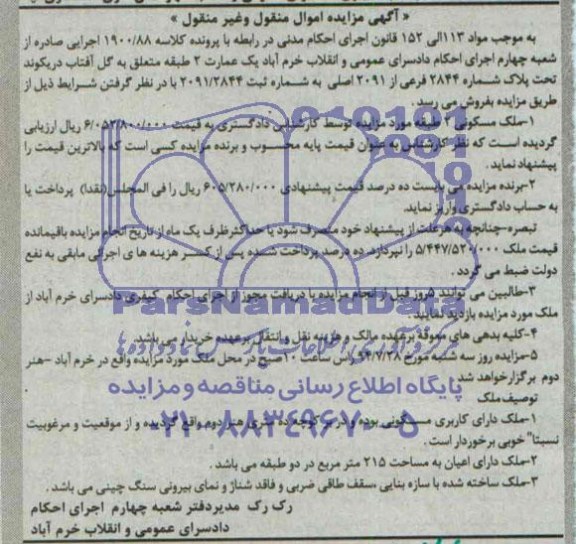 « آگهی مزایده اموال منقول وغیر منقول »
به موجب مواد ۱۱۳الی ۱۵۲ قانون اجرای احکام مدنی در رابطه با پرونده کلاسه ۱۹۰۰/۸۸ اجرایی صادره از
شعبه چهارم اجرای احکام دادسرای عمومی و انقلاب خرم آباد یک عمارت ۲ طبقه متعلق به گل آفتاب دریکوند
تحت پلاک شماره ۲۸۴۴ فرعی از ۲۰۹۱ اصلی به شماره ثبت ۲۰۹۱/۲۸۴۴ با در نظر گرفتن شرایط ذیل از
طریق مزایده بفروش می رسد .
۱-ملک مسکونی ۲ طبقه مورد مزایده توسط کارشناس دادگستری به قیمت ۶/۰۵۲/۸۰۰/۰۰۰ ریال ارزیابی
گردیده است که نظر کارشناس به عنوان قیمت پایه محسوب و برنده مزایده کسی است که بالاترین قیمت را
پیشنهاد نماید .
۲-برنده مزایده می بایست ده درصد قیمت پیشنهادی ۶۰۵/۲۸۰/۰۰۰ ریال را فی المجلس(نقدا) پرداخت یا
به حساب دادگستری واریز نماید.
تبصره-چنانچه به هر علت از پیشنهاد خود منصرف شود یا حداکثرظرف یک ماه از تاریخ انجام مزایده باقیمانده
قیمت ملک ۵/۴۴۷/۵۲۰/۰۰۰ را نپردازد، ده درصد پرداخت شده پس از کسر هزینه ها ی اجرائی مابقی به نفع
دولت ضبط می گردد .
۳-طالبین می توانند ۵روز قبل از انجام مزایده با دریافت مجوز از اجرای احکام کیفری دادسرای خرم آباد از
ملک مورد مزایده بازدید نمایند .
ParsNamadData
۴-کلیه بدهی های معوقه برعهده مالک و هزینه نقل و انتقال برعهده خریدار می باشد.
۵-مزایده روز سه شنبه مورخ ۹۴/۷/۲۸ راس ساعت ۱۰صبح در محل ملک مورد مزایده واقع در خرم آباد -هنر
دوم برگزارخواهد شد.
پایگاه اطلاع رسانی مناقصه و مزایده
توصیف ملک
۱-ملک دارای کاربری مسکونی بوده و در بر کوچه ده متری هنر دوم واقع گردیده و از موقعیت و مرغوبیت
۰۲۱-۸۸۳۴۹۶۷۰-۵
نسبتا" خوبی برخوردار است .
۲-ملک دارای اعیان به مساحت ۲۱۵ متر مربع در دو طبقه می باشد .
۳-ملک ساخته شده با سازه بنایی ،سقف طاقی ضربی و فاقد شناژ و نمای بیرونی سنگ چینی می باشد .
رک رک مدیردفتر شعبه چهارم اجرای احکام
دادسرای عمومی و انقلاب خرم آباد